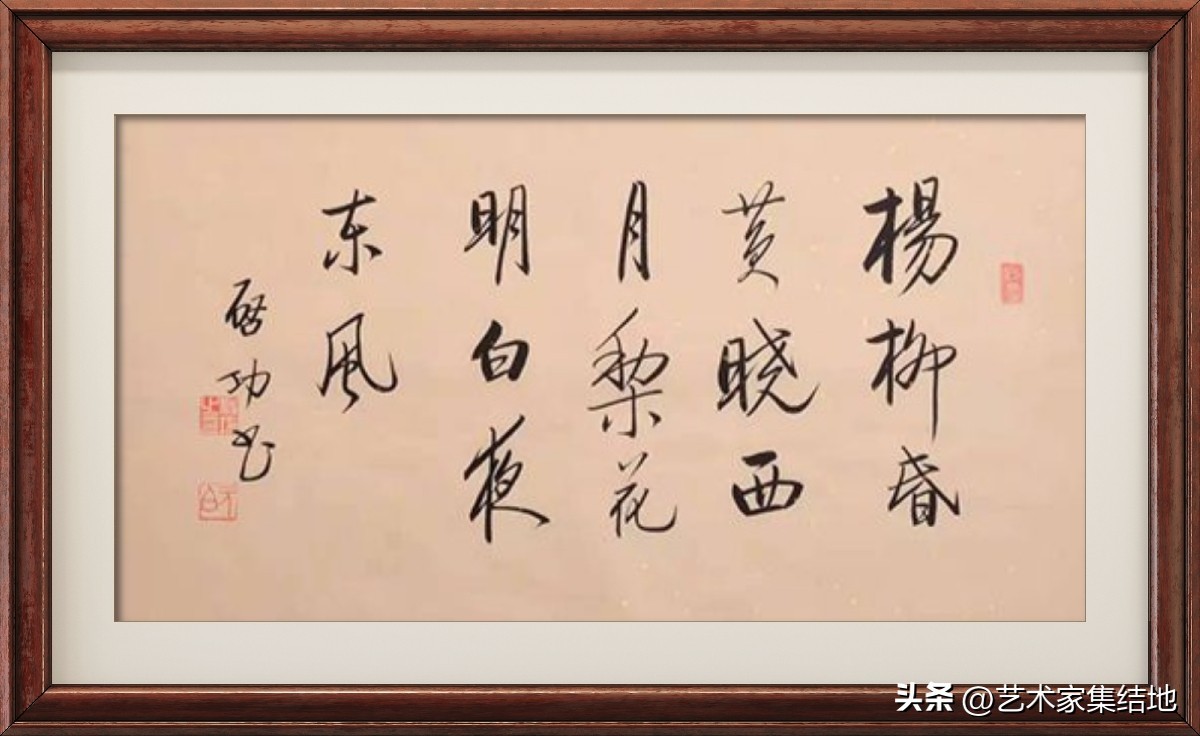 楊柳昏
黄晓西
月梨花
明白夜
东風
啓功书
头条 @艺术家集结地